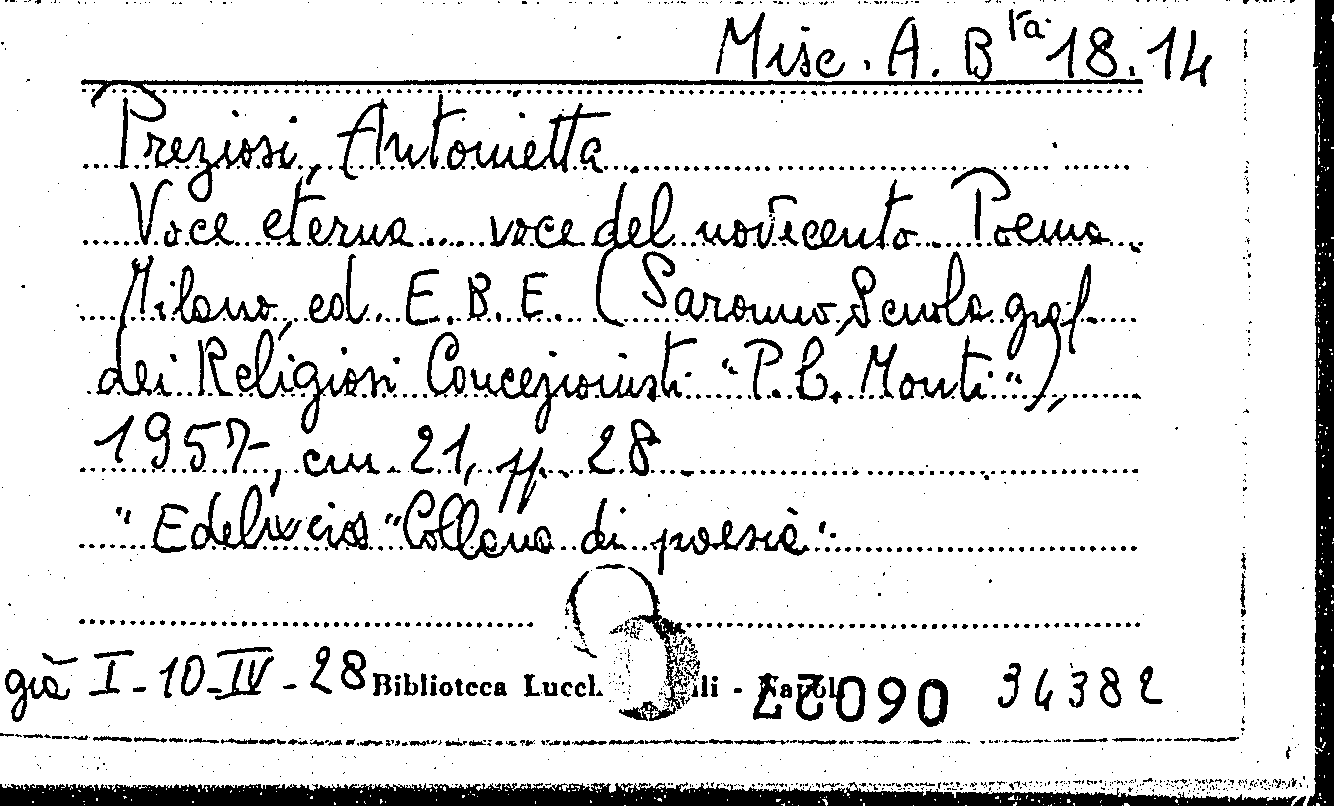 Misc. A. B ta 18.14
Preziosi, Antonietta
Voce eterna.... voce del novecento. Poema.
Milano, ed. E.B.E. (Saronno, Scuola graf.
dei Religiosi Concezionisti "P. L. Monti"),
1957, cm. 21, pp. 28.
Collana di poesia".
già I-10-IV-28 Biblioteca Lucch li - Napoli 060 34382